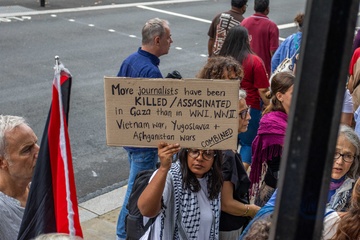 More journalists have been
KILLED/ASSASINATED
in Gaza than in WWI, WWII,
Vietnam war, Yugoslavia +
Afghanistan wars COMBINED